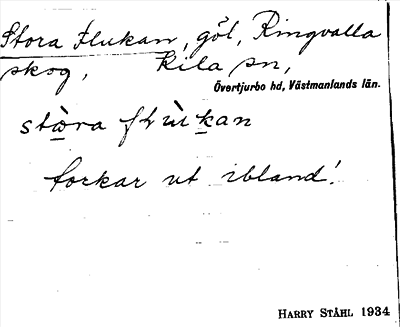 Stora Flukan, göl, Ringvalla
skog, Kila sn,
Övertjurbo hd, Västmanlands län.
torkar ut ibland!
HARRY STÅHL 1934